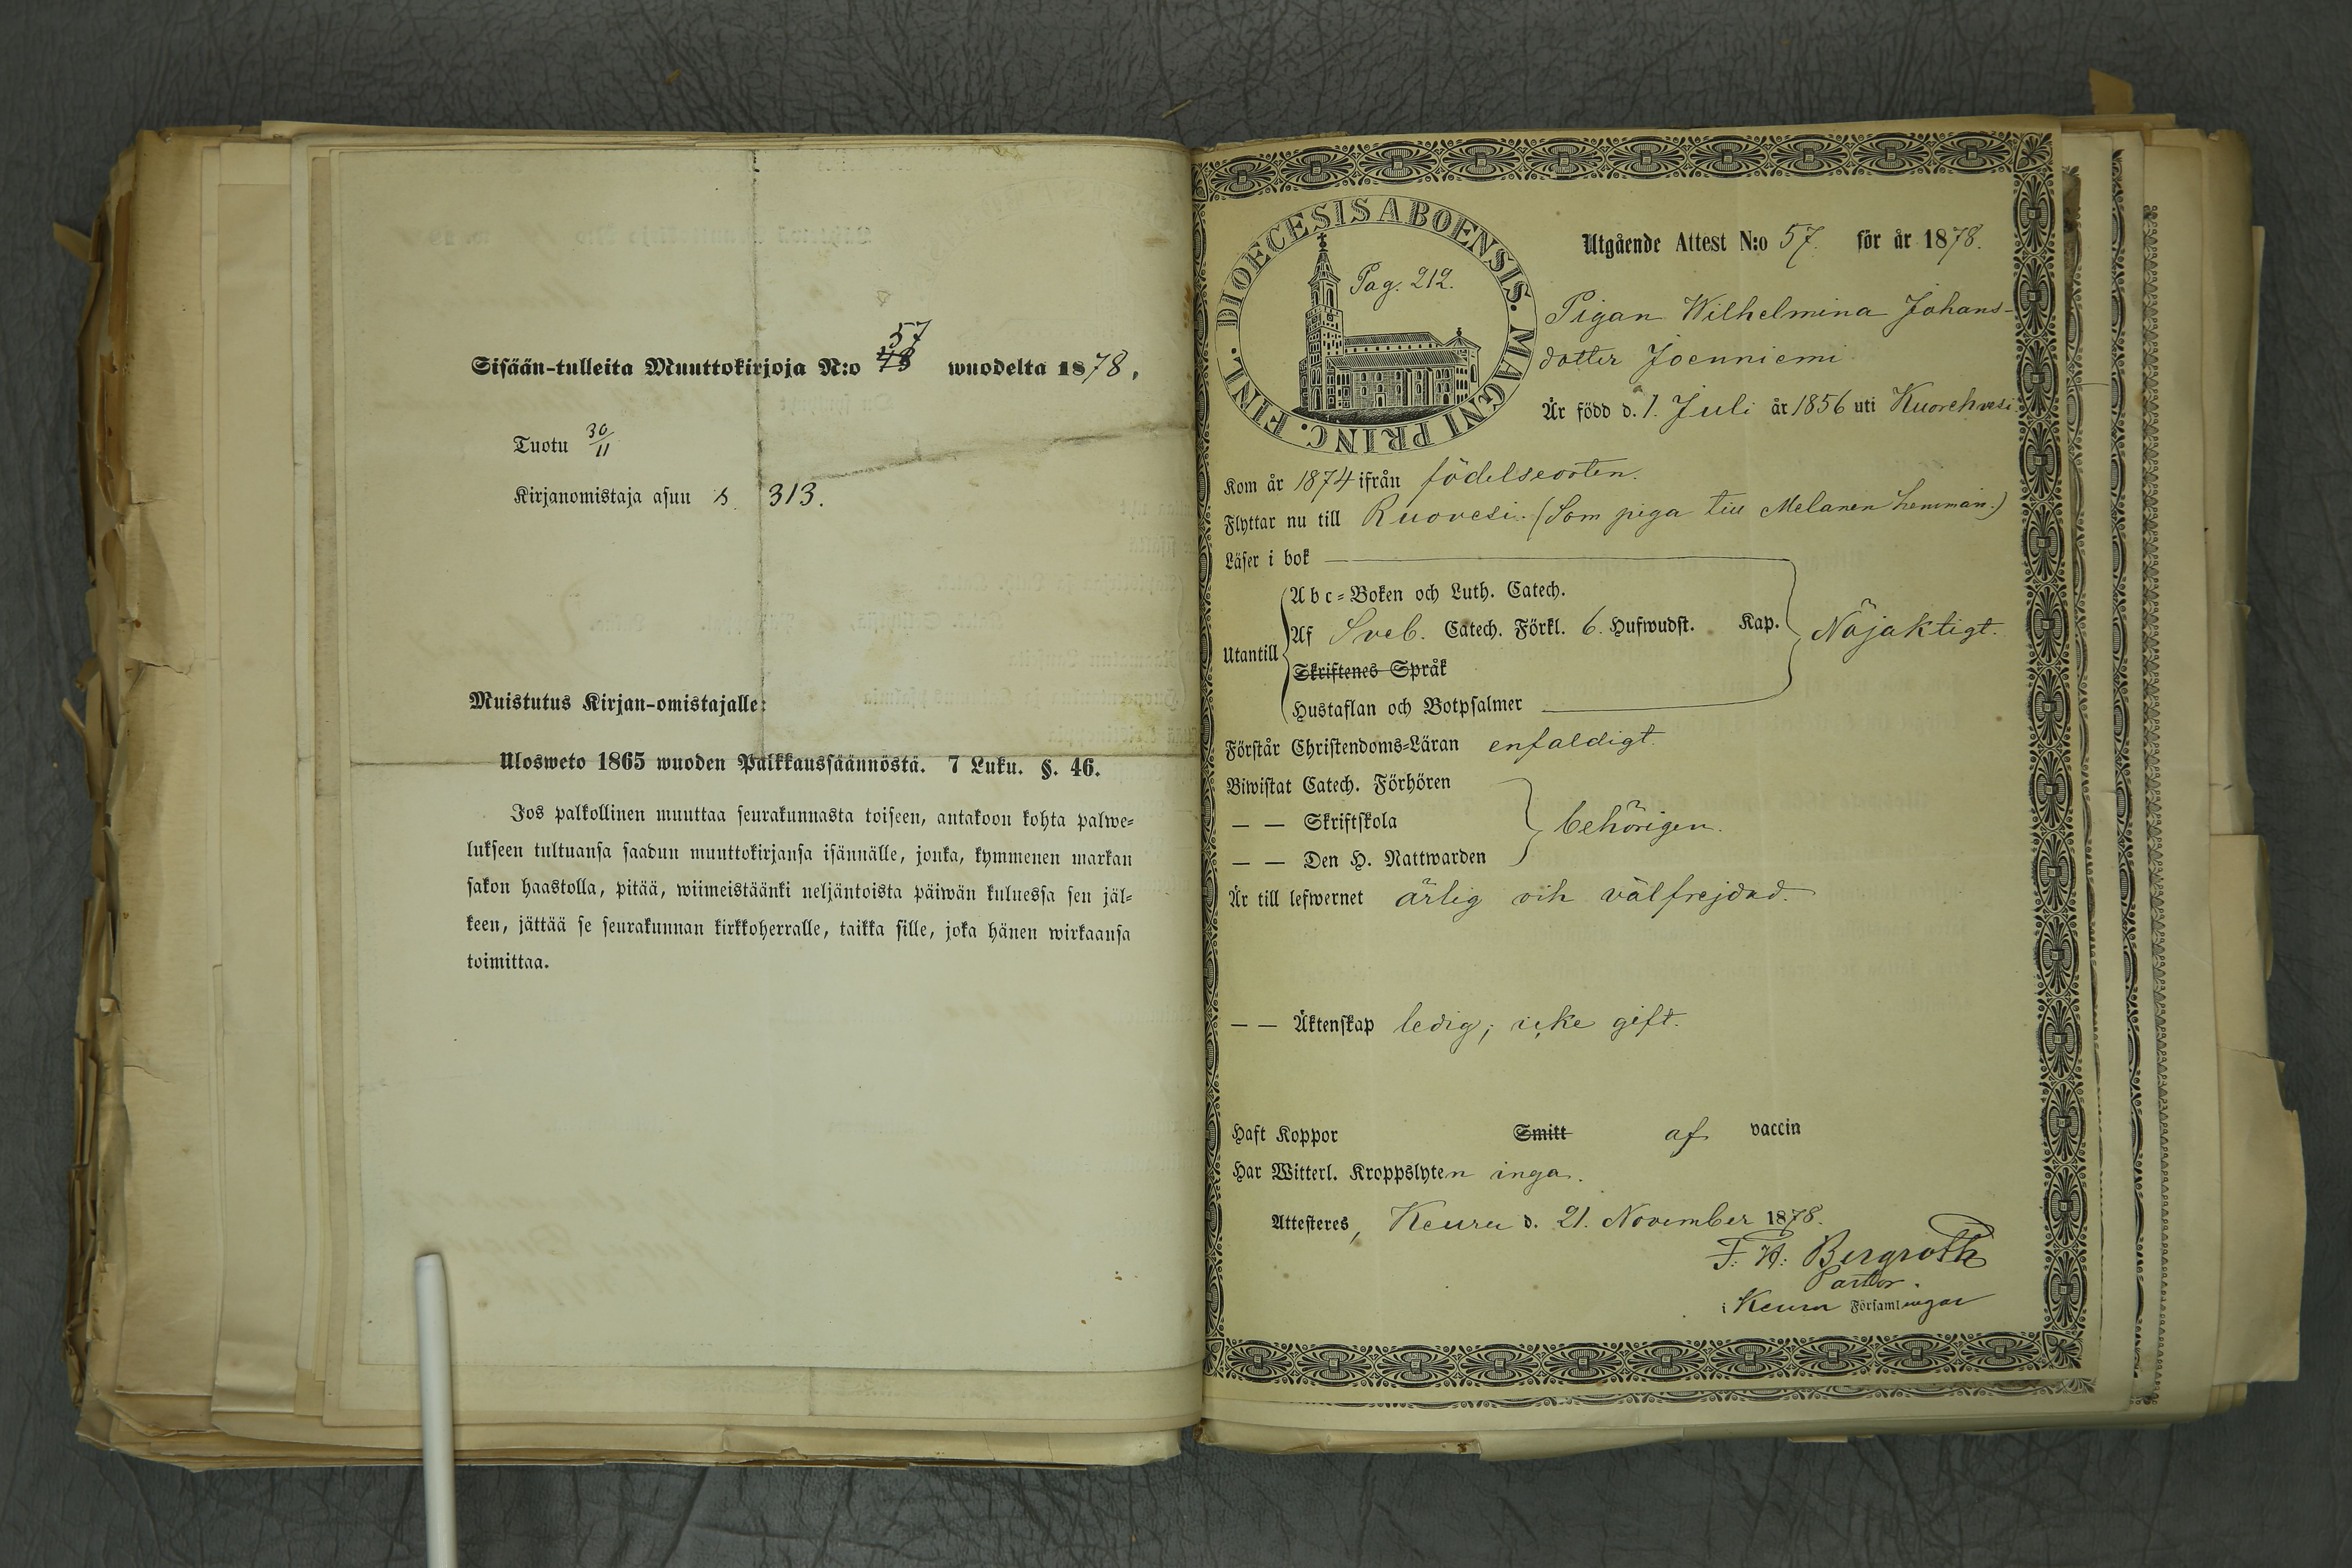 57
Sisään-tulleita Muuttokirjoja N:o 48 wuodelta 1878.
Tuotu 30/11
Kirjanomistaja asuu s. 313.
Muistutus Kirjan-omistajalle:
Ulosweto 1865 wuoden Palkkaussäännöstä. 7 Luku. §. 46.
Jos palkollinen muuttaa seurakunnasta toiseen, antakoon kohta palwe-
lukseen tultuansa saadun muuttokirjansa isännälle, jonka, kymmenen markan
sakon haastolla, pitää, wiimeistäänki neljäntoista päiwän kuluessa sen jäl-
keen, jättää se seurakunnan kirkkoherralle, taikka sille, joka hänen wirkaansa
toimittaa.
DIOECESIS ABOENSIS. MAGNI PRINC. FINL.
Pag. 212.
Utgående Attest N:o 57. för år 1878.
Pigan Wilhelmina Johans-
dotter Joenniemi
Är född d. 1. Juli år 1856 uti Kuorehvesi
Kom år 1874 ifrån födelseorten.
Flyttar nu till Ruovesi. (Som piga till Melanen hemman.)
Läser i bok
Abc-Boken och Luth. Catech.
Utantill Af Sveb. Catech. Förkl. 6. Hufwudst. Kap. Nöjaktigt.
Skriftenes Språk
Hustaflan och Botpsalmer
Förstår Christendoms-Läran enfaldigt.
Biwistat Catech. Förhören
— — Skriftskola behörigen.
— — Den H. Nattwarden
Är till lefwernet ärlig och välfrejdad.
— — Äktenskap ledig; icke gift.
Haft Koppor Smitt af vaccin
Har Witterl. Kroppslyten inga.
Attesteres, Keuru d. 21. November 1878.
F. H. Bergroth
Pastor.
i Keuru Församlingar